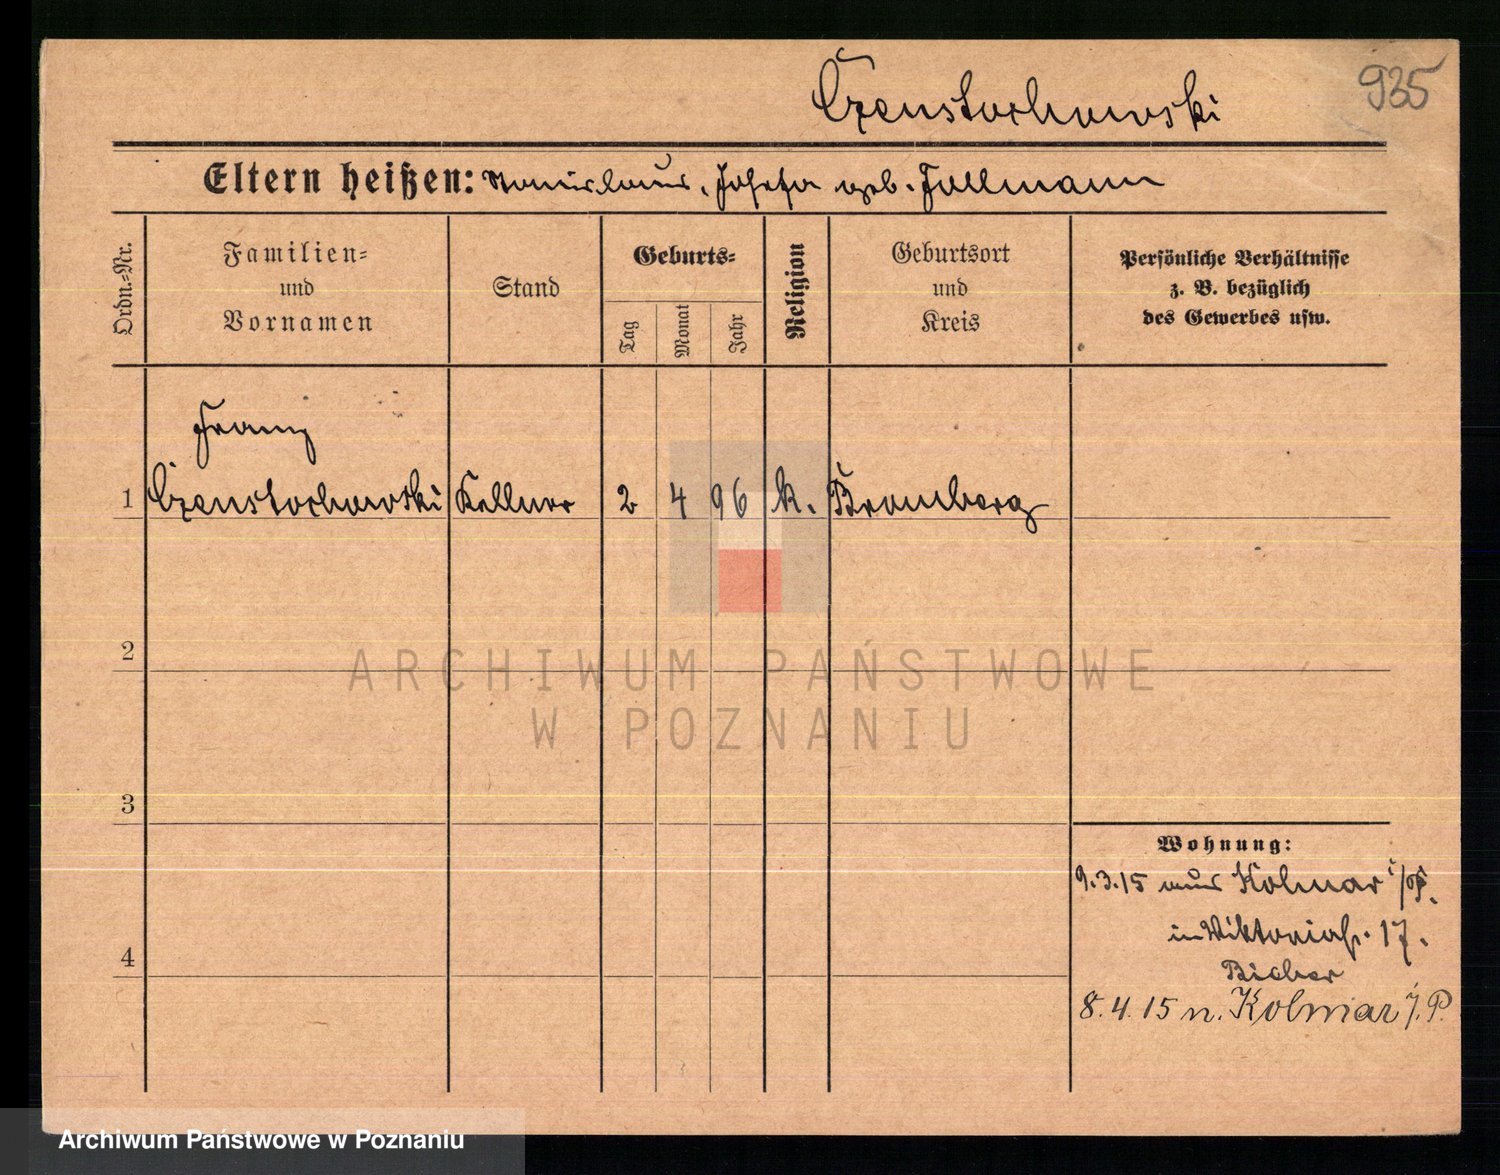 935
Czenstochowski
Eltern heißen: Stanislaus, Josefa geb. Follmann
Ordn.=Nr.
Familien=
und
Vornamen
Stand
Geburts=
Tag
Monat
Jahr
Religion
Geburtsort
und
Kreis
Persönliche Verhältnisse
z. B. bezüglich
des Gewerbes usw.
Franz
1 Czenstochowski Kellner 2 4 96 k. Bromberg
2
ARCHIWUM PAŃSTWOWE
W POZNANIU
3
Wohnung:
9.3.15 aus Kolmar i/P.
in Viktoriastr. 17.
4
8.4.15 n. Kolmar i. P.
Archiwum Państwowe w Poznaniu